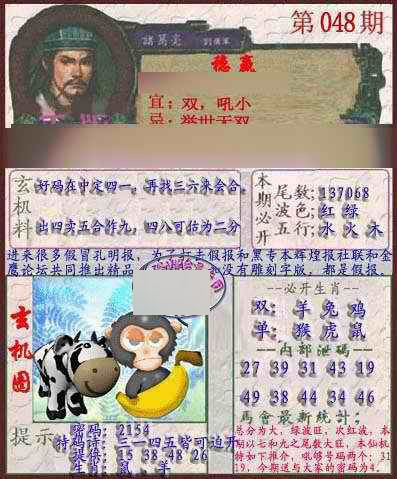 第048期
諸葛亮 劉備軍
稳赢
宜:双,吼小
忌:举世无双
玄机料
好码在中定四一。再找三六来会合。
出四卖五合作九,四八可怡为二分
本期必开
尾数:137068
波色:红 绿
五行:水 火 木
进来很多假冒孔明报,为了打击假报和黑专本辉煌报社联和金
鹰论坛共同推出精品
没有雕刻字版,都是假报.
玄机图
--必开生肖--
双:羊 兔 鸡
单:猴 虎 鼠
--内部泄码--
27 39 31 43 19
49 38 44 34 46
馬會最新統計:
总分为大,绿波旺,次红波,本
期以七和九之尾数大旺,本仙机
特如下推介,吼够号码两个:31
19,今期送与大家的密码为4.
提示
密码:2154
特码诗:三一四五皆可迎开
提供:15 38 48 26
生肖:鼠 羊